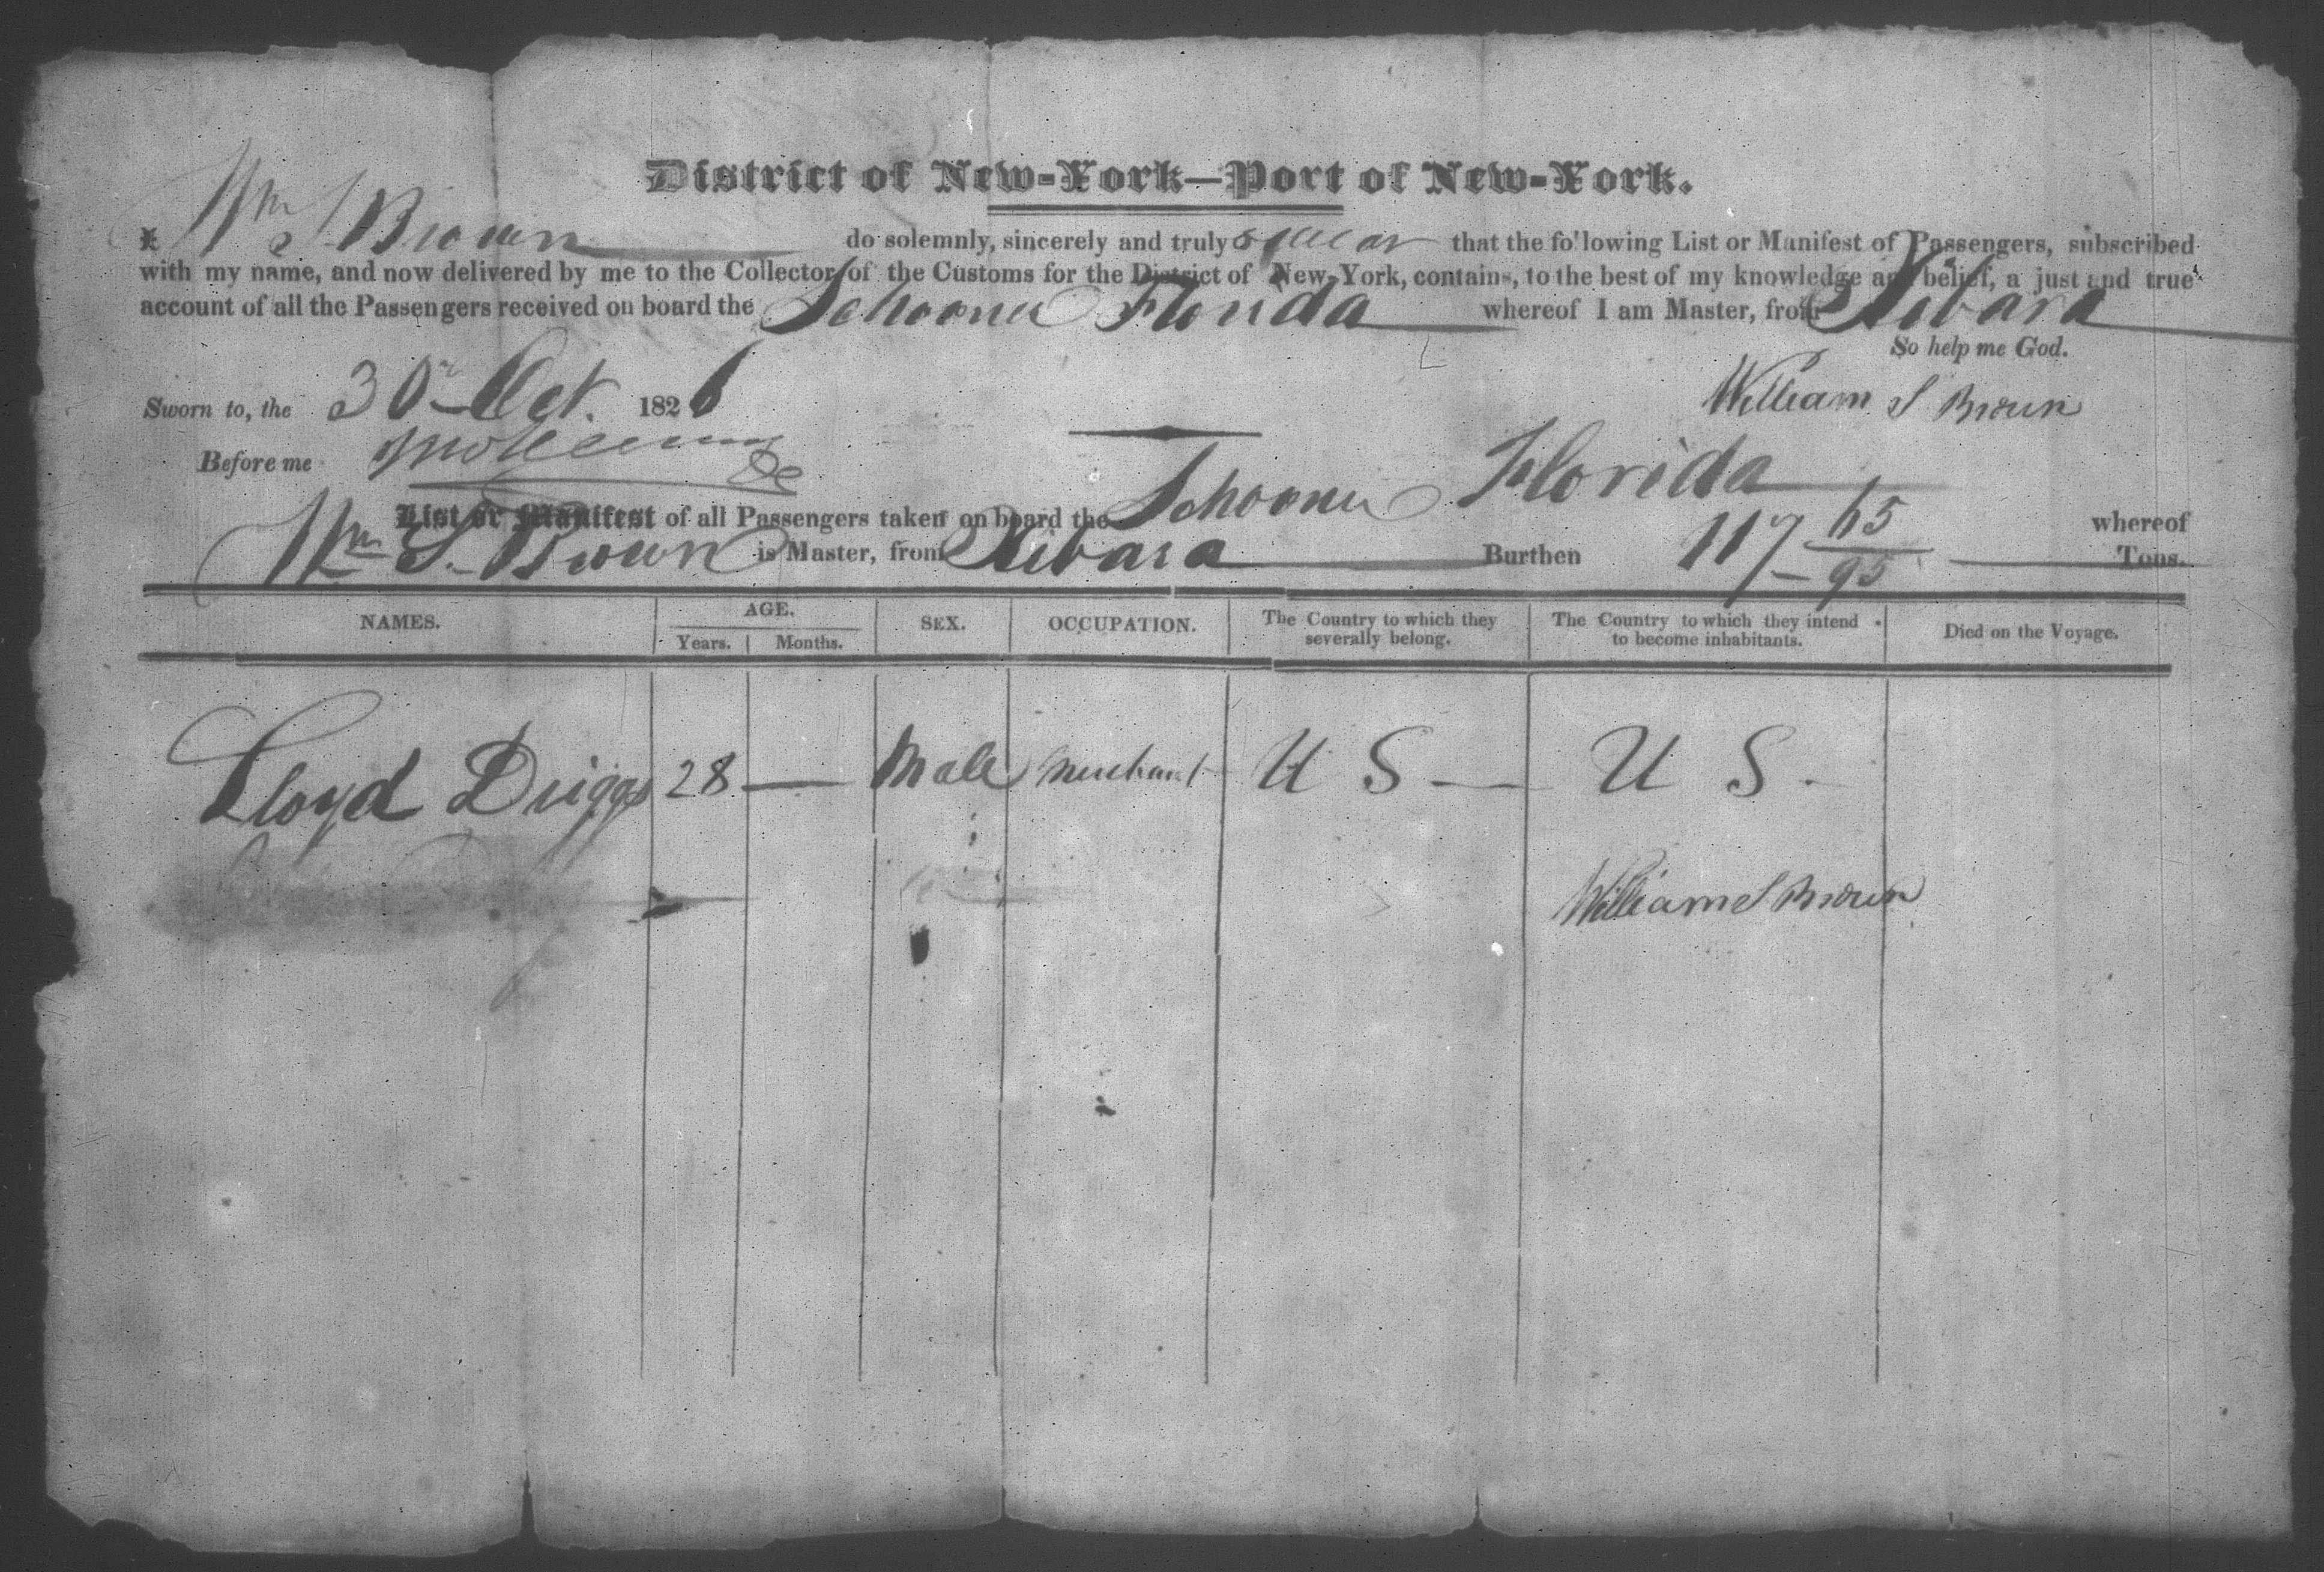 District of New-York—Port of New-York.
I, Wm S Brown do solemnly, sincerely and truly swear that the following List or Manifest of Passengers, subscribed
with my name, and now delivered by me to the Collector of the Customs for the District of New-York, contains, to the best of my knowledge and belief, a just and true
account of all the Passengers received on board the Schooner Florida whereof I am Master, from Xibara
So help me God.
Sworn to, the 30 Oct. 1826
William S Brown
Before me
List or Manifest of all Passengers taken on board the Schooner Florida whereof
Wm S. Brown is Master, from Xibara Burthen 117 65/95 Tons.
NAMES. AGE. SEX. OCCUPATION. The Country to which they severally belong. The Country to which they intend to become inhabitants. Died on the Voyage.
Years. Months.
Lloyd Driggs 28 — Male Merchant U S — U S -
William S Brown